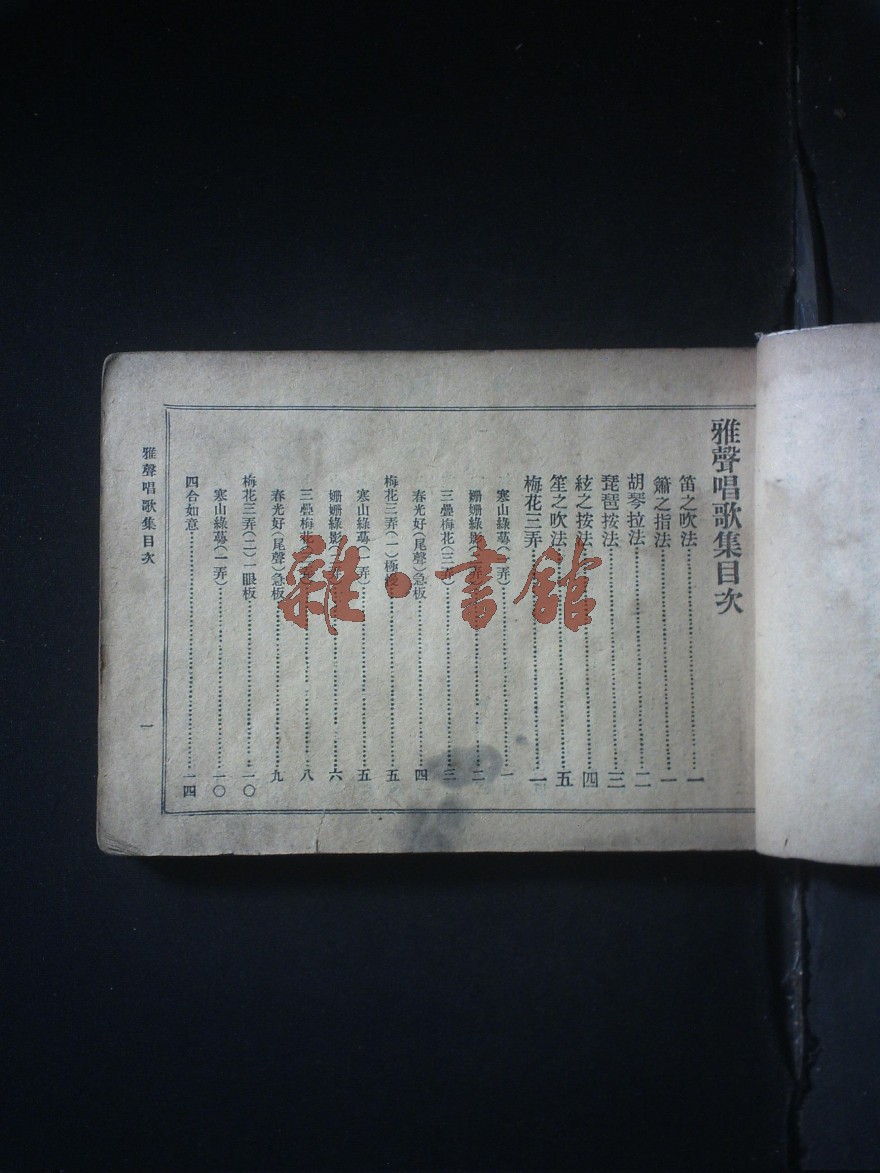 雅聲唱歌集目次
笛之吹法………一
簫之指法………一
胡琴拉法………二
琵琶按法………三
絃之按法………四
笙之吹法………五
梅花三弄………一
寒山綠萼(一弄)………一
姍姍綠影………二
三疊梅花(三………三
春光好(尾聲)急板………四
梅花三弄(一)極………五
寒山綠萼(一弄)………五
姍姍綠影………六
三疊梅花………八
春光好(尾聲)急板………九
梅花三弄(二)一眼板………一〇
寒山綠萼(一弄)………一〇
四合如意………一四
雅聲唱歌集目次
一
雜·書館